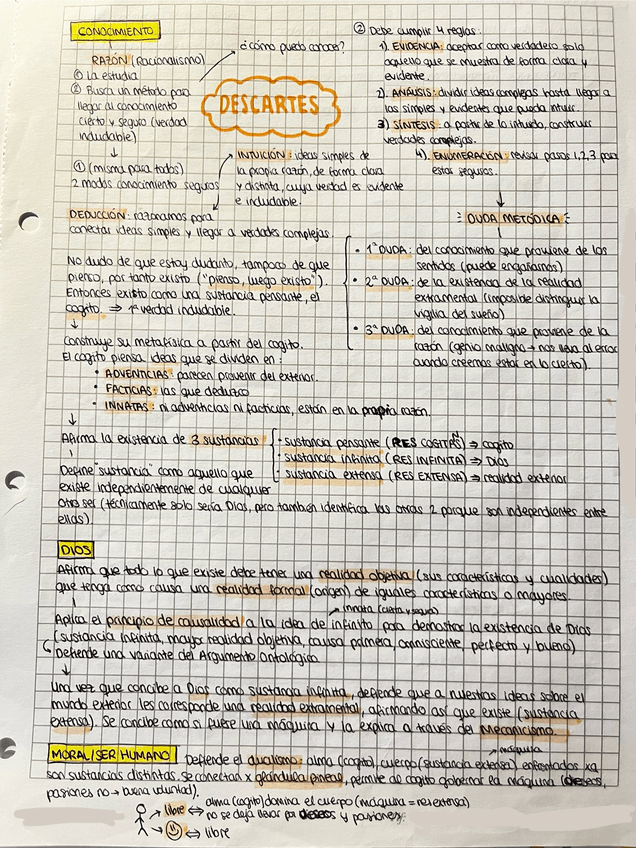 CONOCIMIENTO
RAZÓN (Racionalismo)
① La estudia
② Busca un método para
llegar al conocimiento
cierto y seguro (verdad
indudable)
¿cómo puedo conocer?
DESCARTES
② Debe cumplir 4 reglas:
1). EVIDENCIA: aceptar como verdadero solo
aquello que se muestra de forma clara y
evidente.
2). ANÁLISIS: dividir ideas complejas hasta llegar a
las simples y evidentes que pueda intuir.
3) SÍNTESIS: a partir de lo intuido, construir
verdades complejas.
4). ENUMERACIÓN: revisar pasos 1,2,3 para
estar seguros.
① (misma para todos)
2 modos conocimiento seguros
INTUICIÓN: ideas simples de
la propia razón, de forma clara
y distinta, cuya verdad es evidente
e indudable.
DEDUCCIÓN: razonamos para
conectar ideas simples y llegar a verdades complejas.
DUDA METÓDICA
• 1ª DUDA: del conocimiento que proviene de los
sentidos (puede engañarnos)
• 2ª DUDA: de la existencia de la realidad
extramental (imposible distinguir la
vigilia del sueño)
• 3ª DUDA: del conocimiento que proviene de la
razón (genio maligno → nos lleva al error
cuando creemos estar en lo cierto).
No dudo de que estoy dudando, tampoco de que
pienso, por tanto existo ("pienso, luego existo").
Entonces existo como una sustancia pensante, el
cogito ⇒ 1ª verdad indudable.
Construye su metafísica a partir del cogito.
El cogito piensa ideas que se dividen en:
• ADVENTICIAS: parecen provenir del exterior.
• FACTICIAS: las que deduzco
• INNATAS: ni adventicias ni facticias, están en la propia razón.
Afirma la existencia de 3 sustancias
· sustancia pensante (RES COGITANS) ⇒ cogito
· sustancia infinita (RES INFINITA) ⇒ DIOS
· sustancia extensa (RES EXTENSA) ⇒ realidad exterior
Define "sustancia" como aquello que
existe independientemente de cualquier
otro ser (técnicamente solo sería Dios, pero también identifica las otras 2 porque son independientes entre
ellas).
DIOS
Afirma que todo lo que existe debe tener una realidad objetiva (sus características y cualidades)
que tenga como causa una realidad formal (origen) de iguales características o mayores.
innata (cierta y segura)
Aplica el principio de causalidad a la idea de infinito para demostrar la existencia de Dios
(sustancia infinita, mayor realidad objetiva, causa primera, omnisciente, perfecto y bueno)
Defiende una variante del Argumento Ontológico
Una vez que concibe a Dios como sustancia infinita, defiende que a nuestras ideas sobre el
mundo exterior les corresponde una realidad extramental, afirmando así que existe (sustancia
extensa). Se concibe como si fuese una máquina y la explica a través del Mecanicismo.
MORAL/SER HUMANO Defiende el dualismo: alma (cogito), cuerpo (sustancia extensa) enfrentados xa
máquina
son sustancias distintas. Se conectan x glándula pineal, permite al cogito gobernar la máquina (deseos,
pasiones no → buena voluntad).
libre ⇔ alma (cogito) domina el cuerpo (máquina = res extensa)
no se deja llevar por deseos y pasiones.
⇔ libre